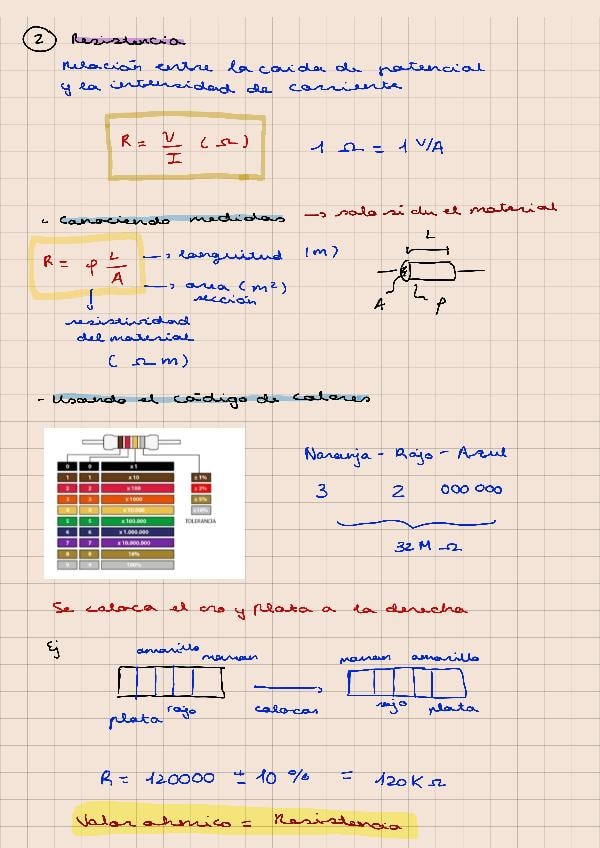 2 Resistencia
Relación entre la caída de potencial
y la intensidad de corriente
R = V/I (Ω)
1 Ω = 1 V/A
- Conociendo medidas → solo si du el material
R = ρ L/A
→ longuitud (m)
→ area (m²)
sección
resistividad
del material
(Ω m)
L
A
L ρ
- Usando el código de colores
0 0 x 1
1 1 x 10 ± 1%
2 2 x 100 ± 2%
3 3 x 1000 ± 5%
4 4 x 10.000 ± 10%
5 5 x 100.000 TOLERANCIA
6 6 x 1.000.000
7 7 x 10.000.000
8 8 10%
9 9 100%
Naranja - Rojo - Azul
3 2 000 000
32 M Ω
Se coloca el oro y plata a la derecha
Ej
amarillo
marron
plata
rojo
colocas
marron amarillo
rojo plata
R = 120000 ± 10 % = 120K Ω
Valor ohmico = Resistencia